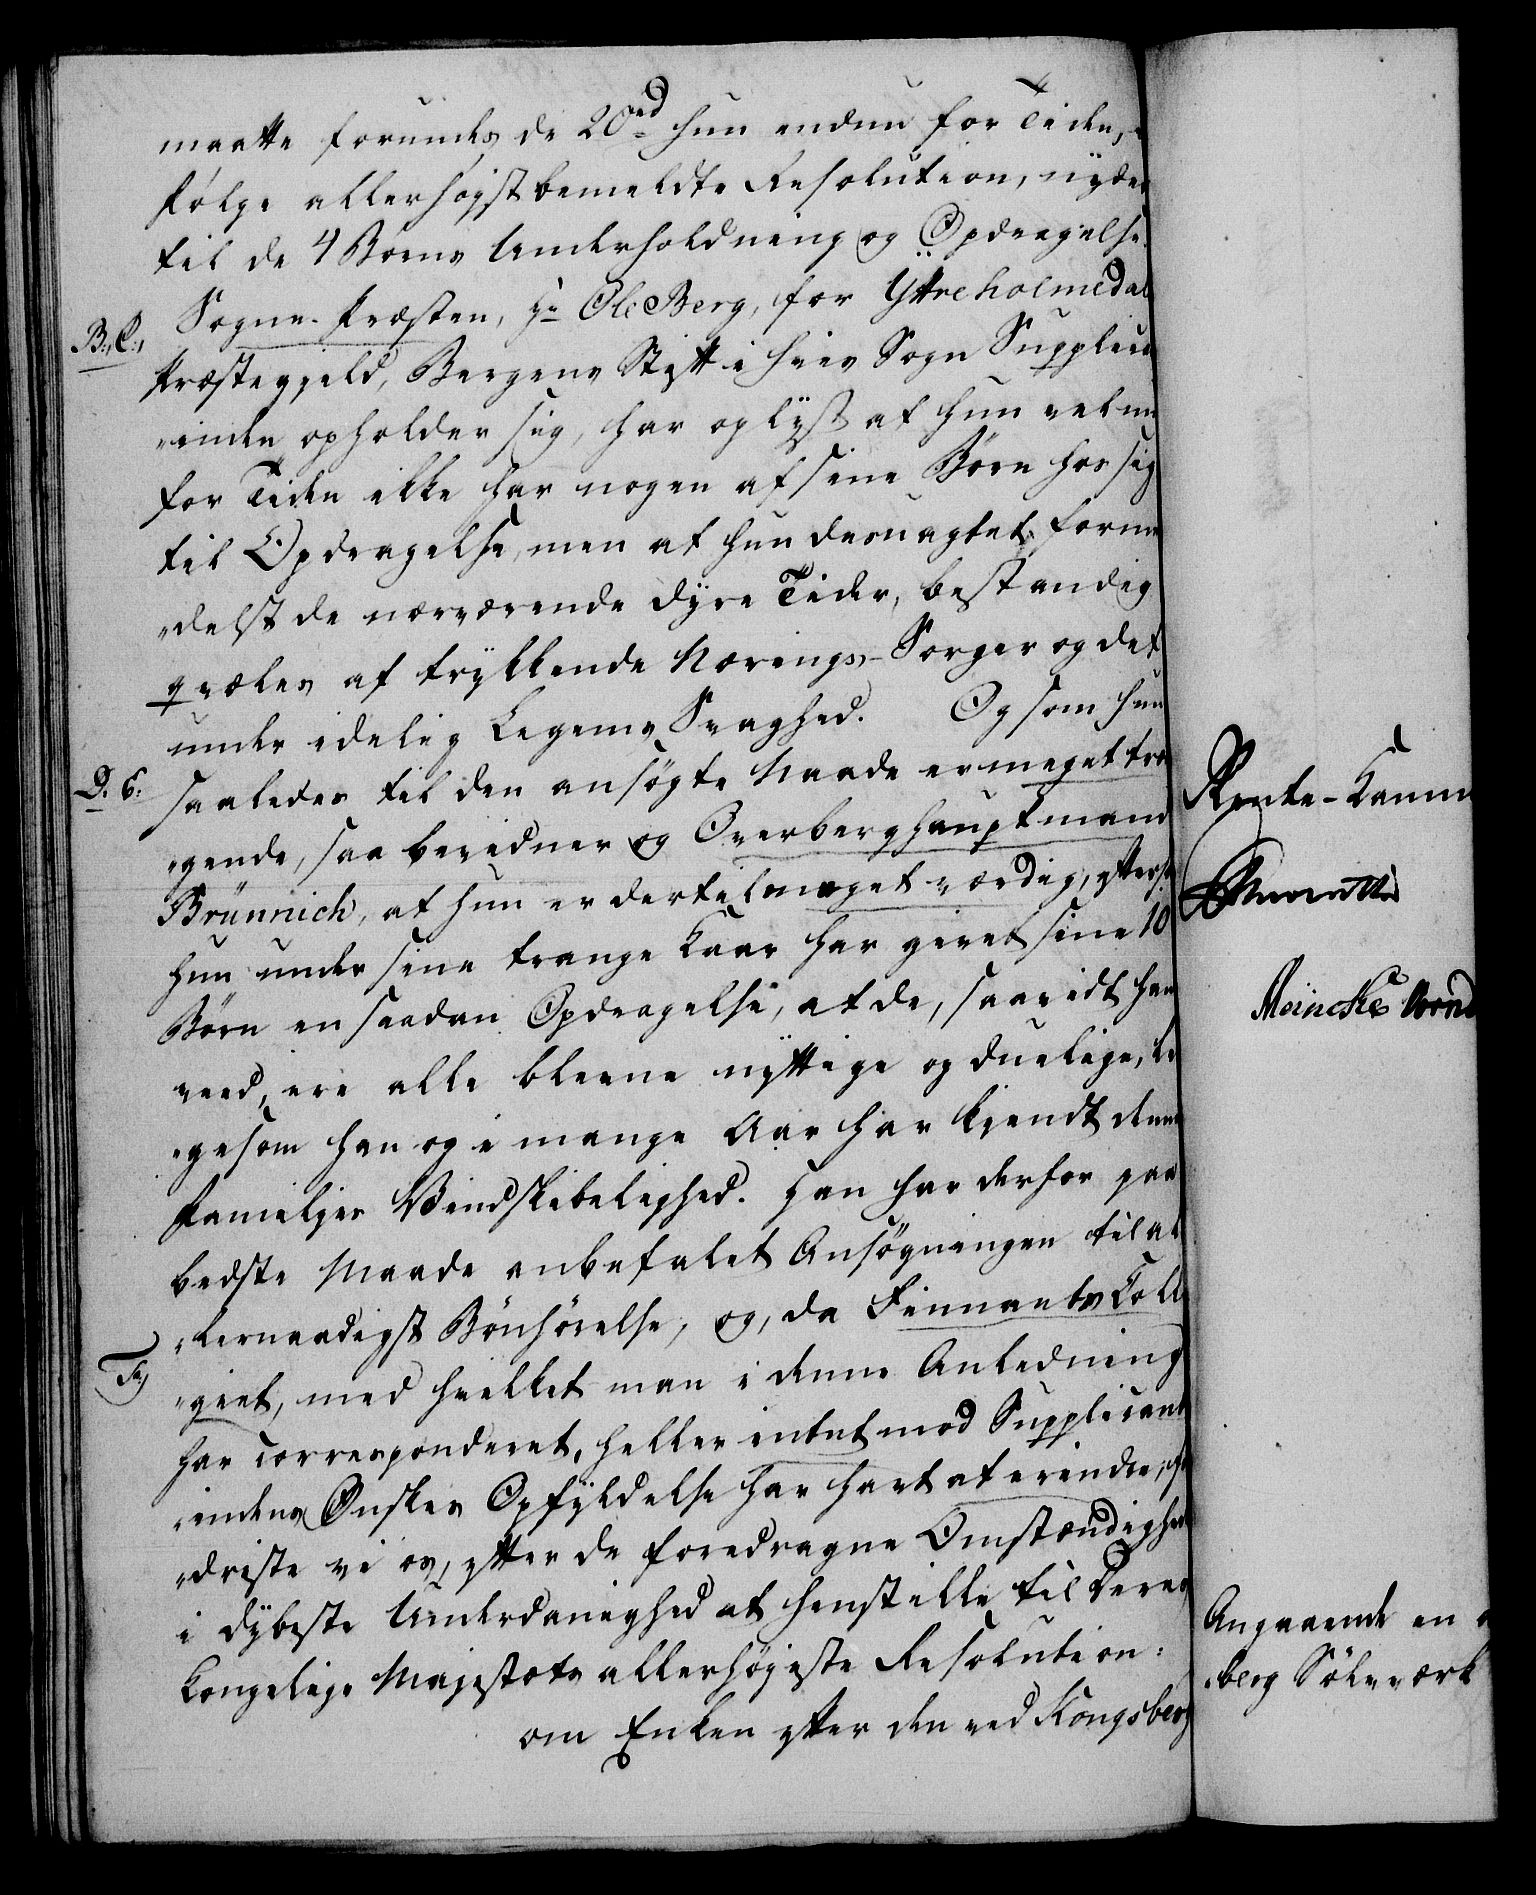 maatte forundes de 20rd hun endnu for Tiden,
følge allerhøjstbemeldte Resolution, nyder
til de 4 Børns Underholdning og Opdragelse.
Sogne-Præsten, Hr Ole Berg, for Yttreholmedal
B., C.,
Præstegjeld, Bergens Stift i hvis Sogn Supplica
„inden opholder sig, har oplyst at hun vel nu
for Tiden ikke har nogen af sine Børn hos sig
til Opdragelse, men at hun desuagtet forme
„delst de nærværende dyre Tider, bestandig
qvæles af trykkende Nærings-Sorger og det
under idelig Legems Svaghed. Og som hun
D. E.
saaledes til den ansøgte Naade er meget træn
„gende, saa bevidner og Overberghauptmand
Brünnich, at hun er dertil meget værdig, efters
hun under sine trange Kaar har givet sine 10
Børn en saadan Opdragelse, at de, saavidt han
veed, ere alle blevne nyttige og duelige, li
„gesom han og i mange Aar har kjendt denne
Familjes Vindskibelighed. Han har derfor paa
bedste Maade anbefalet Ansøgningen til al
„lernaadigst Bønhørelse, og, da Finnants Colle
F,
„giet, med hvilket man i denne Anledning
har corresponderet, heller intet mod Supplicant
„indens Ønskes Opfyldelse har havt at erindre, for
„driste vi os, efter de foredragne Omstændighed
i dybeste Underdanighed at henstille til Deres
Kongelige Majestæts allerhøjeste Resolution:
om Enken efter den ved Kongsberg
Rente-Kamm
Meinckes
Angaaende en
„berg Sølvværk